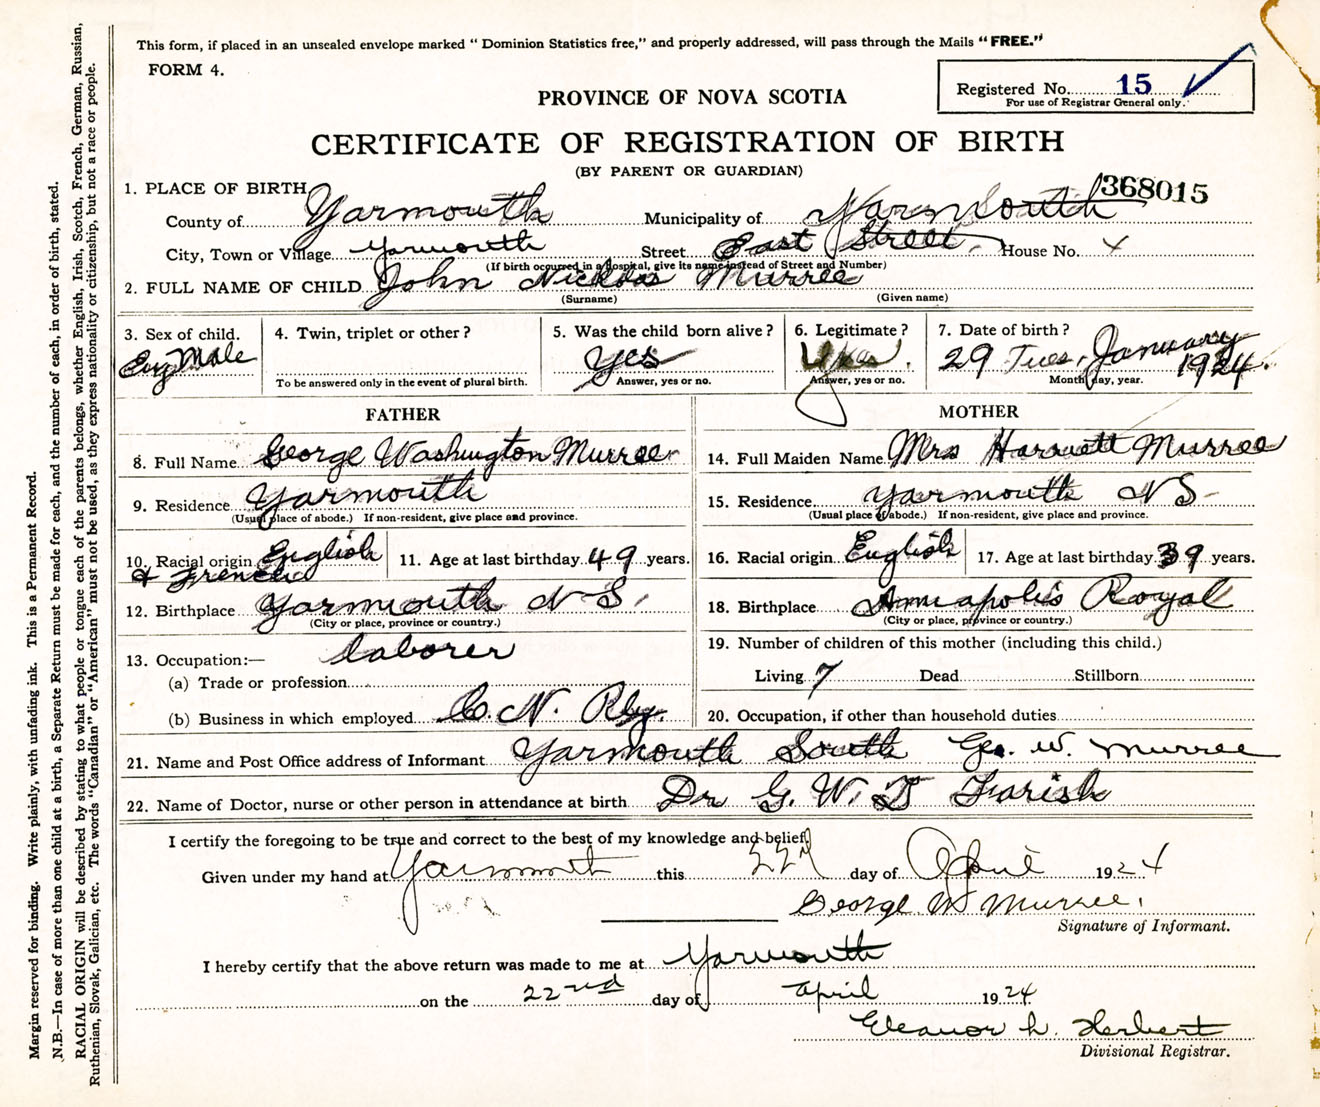 This form, if placed in an unsealed envelope marked "Dominion Statistics free," and properly addressed, will pass through the Mails "FREE."
FORM 4.
Registered No. 15
For use of Registrar General only.
PROVINCE OF NOVA SCOTIA
CERTIFICATE OF REGISTRATION OF BIRTH
(BY PARENT OR GUARDIAN)
368015
1. PLACE OF BIRTH
County of Yarmouth Municipality of Yarmouth
City, Town or Village Yarmouth Street East Street, House No. 4
(If birth occurred in a hospital, give its name instead of Street and Number)
2. FULL NAME OF CHILD John Nickolas Murree
(Surname) (Given name)
3. Sex of child. 4. Twin, triplet or other? 5. Was the child born alive? 6. Legitimate? 7. Date of birth?
Male Yes Yes. 29 Tues, January 1924.
To be answered only in the event of plural birth. Answer, yes or no. Answer, yes or no. Month, day, year.
FATHER MOTHER
8. Full Name George Washington Murree 14. Full Maiden Name Mrs Harriett Murree
9. Residence Yarmouth 15. Residence Yarmouth N S
(Usual place of abode.) If non-resident, give place and province. (Usual place of abode.) If non-resident, give place and province.
10. Racial origin English & French 11. Age at last birthday 49 years. 16. Racial origin English 17. Age at last birthday 39 years.
12. Birthplace Yarmouth N S, 18. Birthplace Annapolis Royal
(City or place, province or country.) (City or place, province or country.)
13. Occupation:— laborer 19. Number of children of this mother (including this child.)
(a) Trade or profession Living 7 Dead Stillborn
(b) Business in which employed C. N. Rly. 20. Occupation, if other than household duties
21. Name and Post Office address of Informant Yarmouth South Geo. W. Murree
22. Name of Doctor, nurse or other person in attendance at birth Dr G. W. T Farish
I certify the foregoing to be true and correct to the best of my knowledge and belief.
Given under my hand at Yarmouth this 22 day of April 1924
George W Murree.
Signature of Informant.
I hereby certify that the above return was made to me at Yarmouth
on the 22nd day of April 1924
Eleanor L. Herbert
Divisional Registrar.
Margin reserved for binding. Write plainly, with unfading ink. This is a Permanent Record.
N.B.—In case of more than one child at a birth, a Separate Return must be made for each, and the number of each, in order of birth, stated.
RACIAL ORIGIN will be described by stating to what people or tongue each of the parents belongs, whether English, Irish, Scotch, French, German, Russian,
Ruthenian, Slovak, Galician, etc. The words "Canadian" or "American" must not be used, as they express nationality or citizenship, but not a race or people.